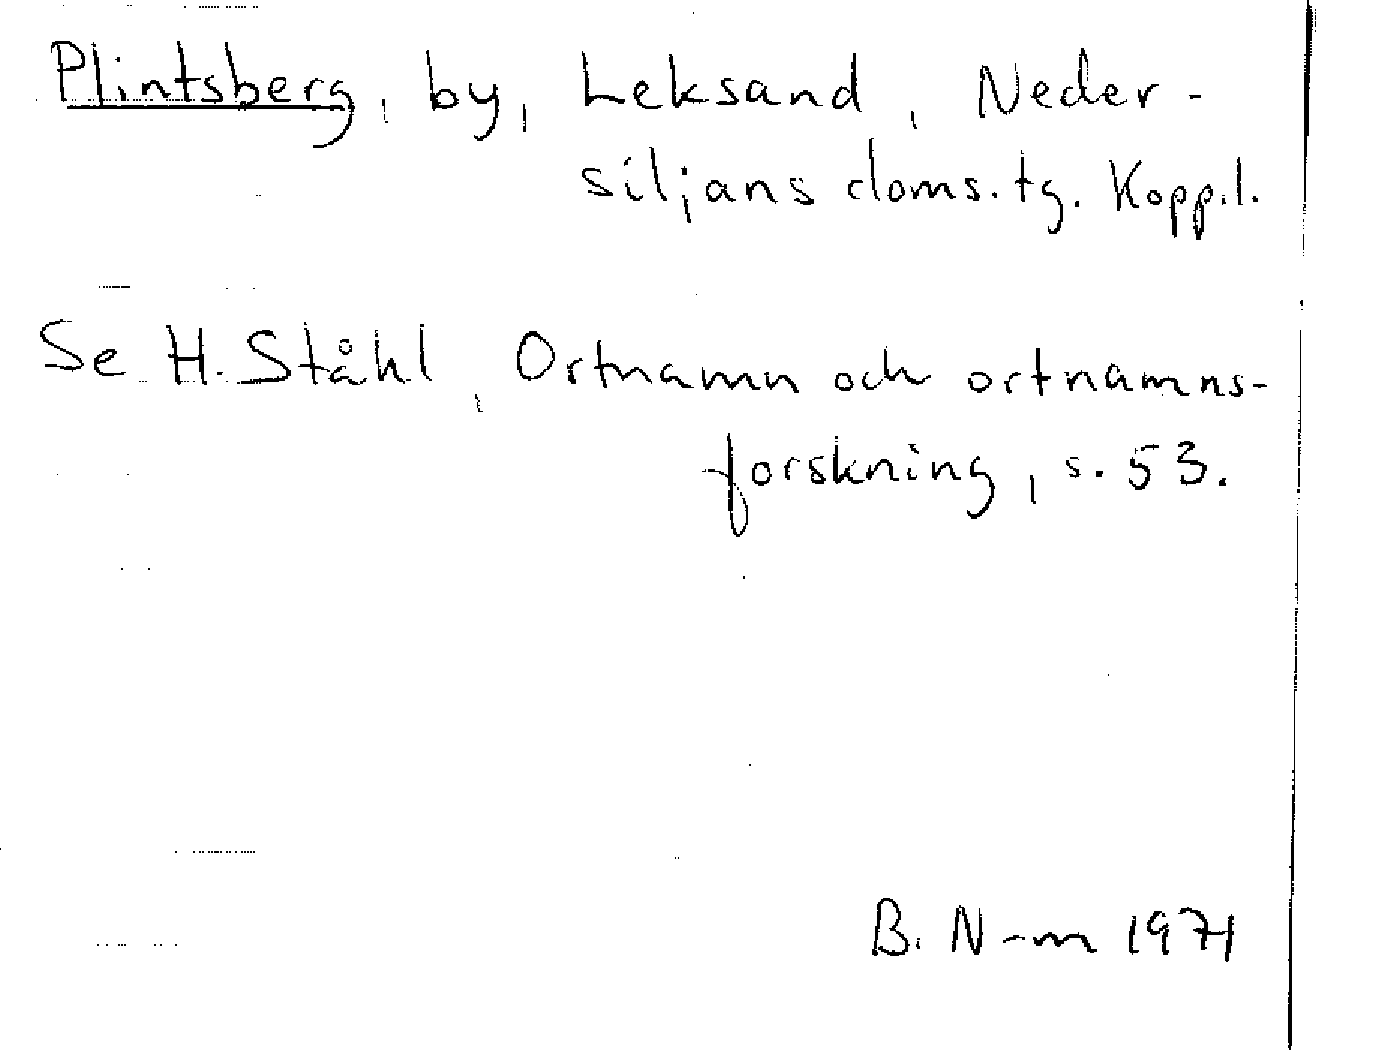 Plintsberg, by, Leksand, Neder-
siljans doms.tg. Kopp.l.
Se H. Ståhl, Ortnamn och ortnamns-
forskning, s. 53.
B. N-m 1971